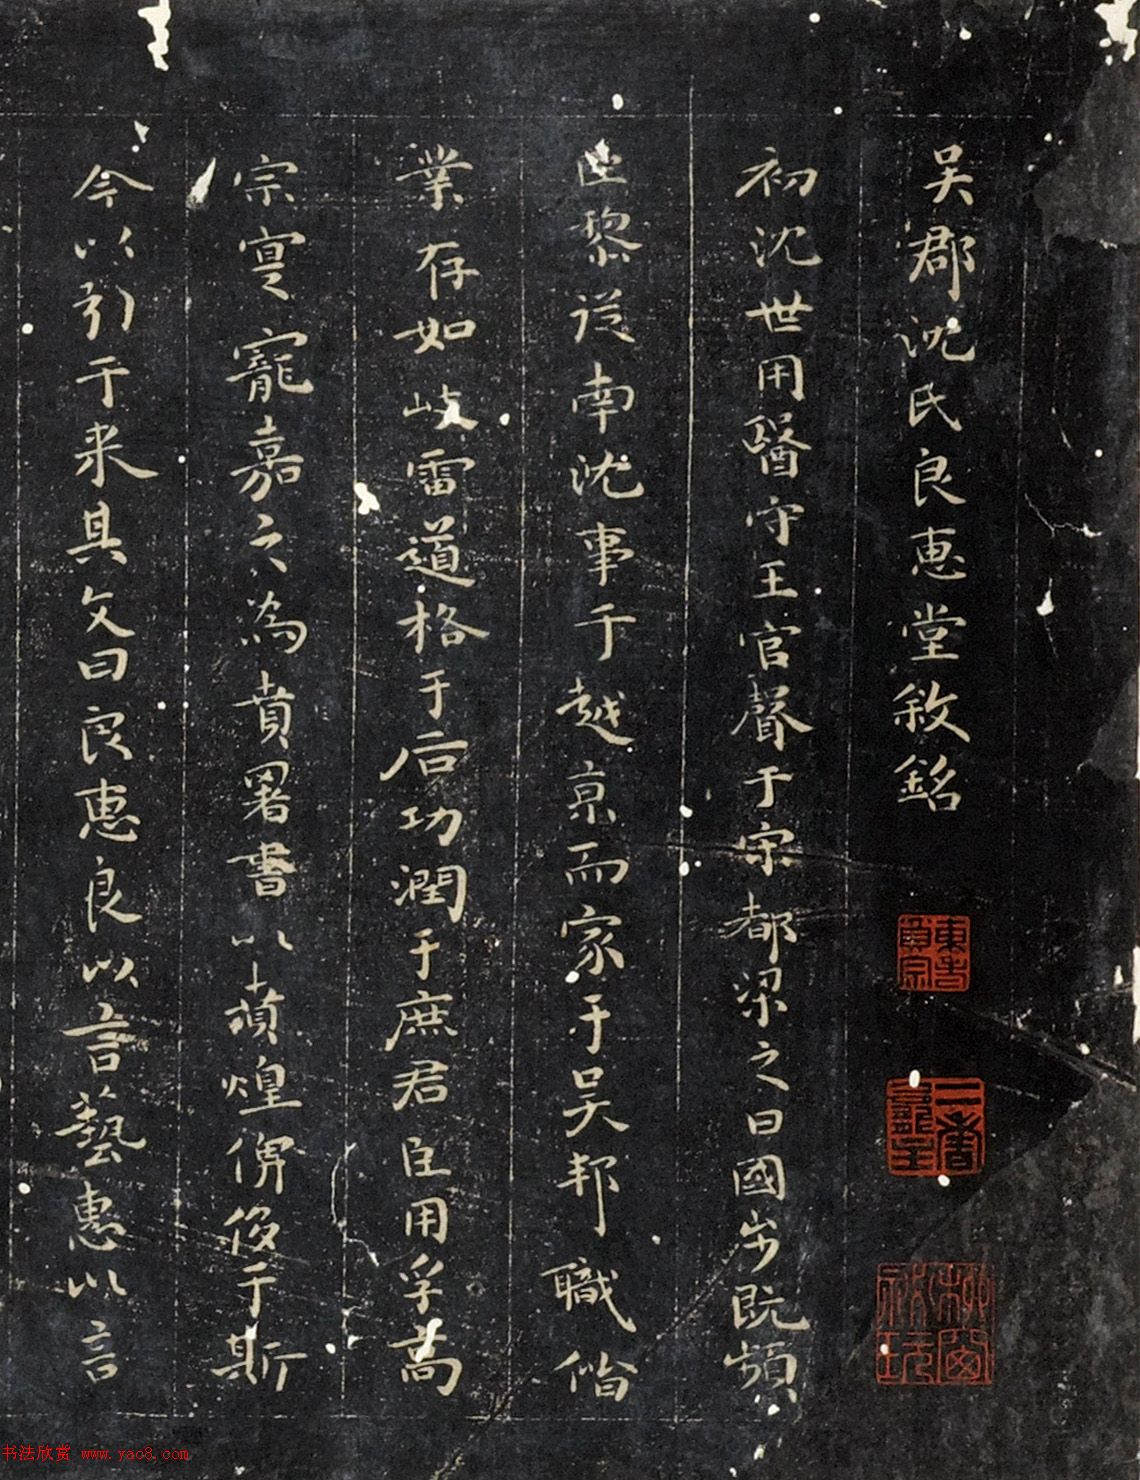 吴郡沈氏良惠堂敘銘
初沈世用醫守王官聲于宋都梁之日國步既頻
臣黎從南沈事于越京而家于吴邦職脩
業存如岐雷道格于后功潤于庶君臣用孚高
宗寔寵嘉之為賁署書以蕆煌俾侈于斯
今以引于来具文曰良惠良以言藝惠以言
書法欣赏 www.yac8.com